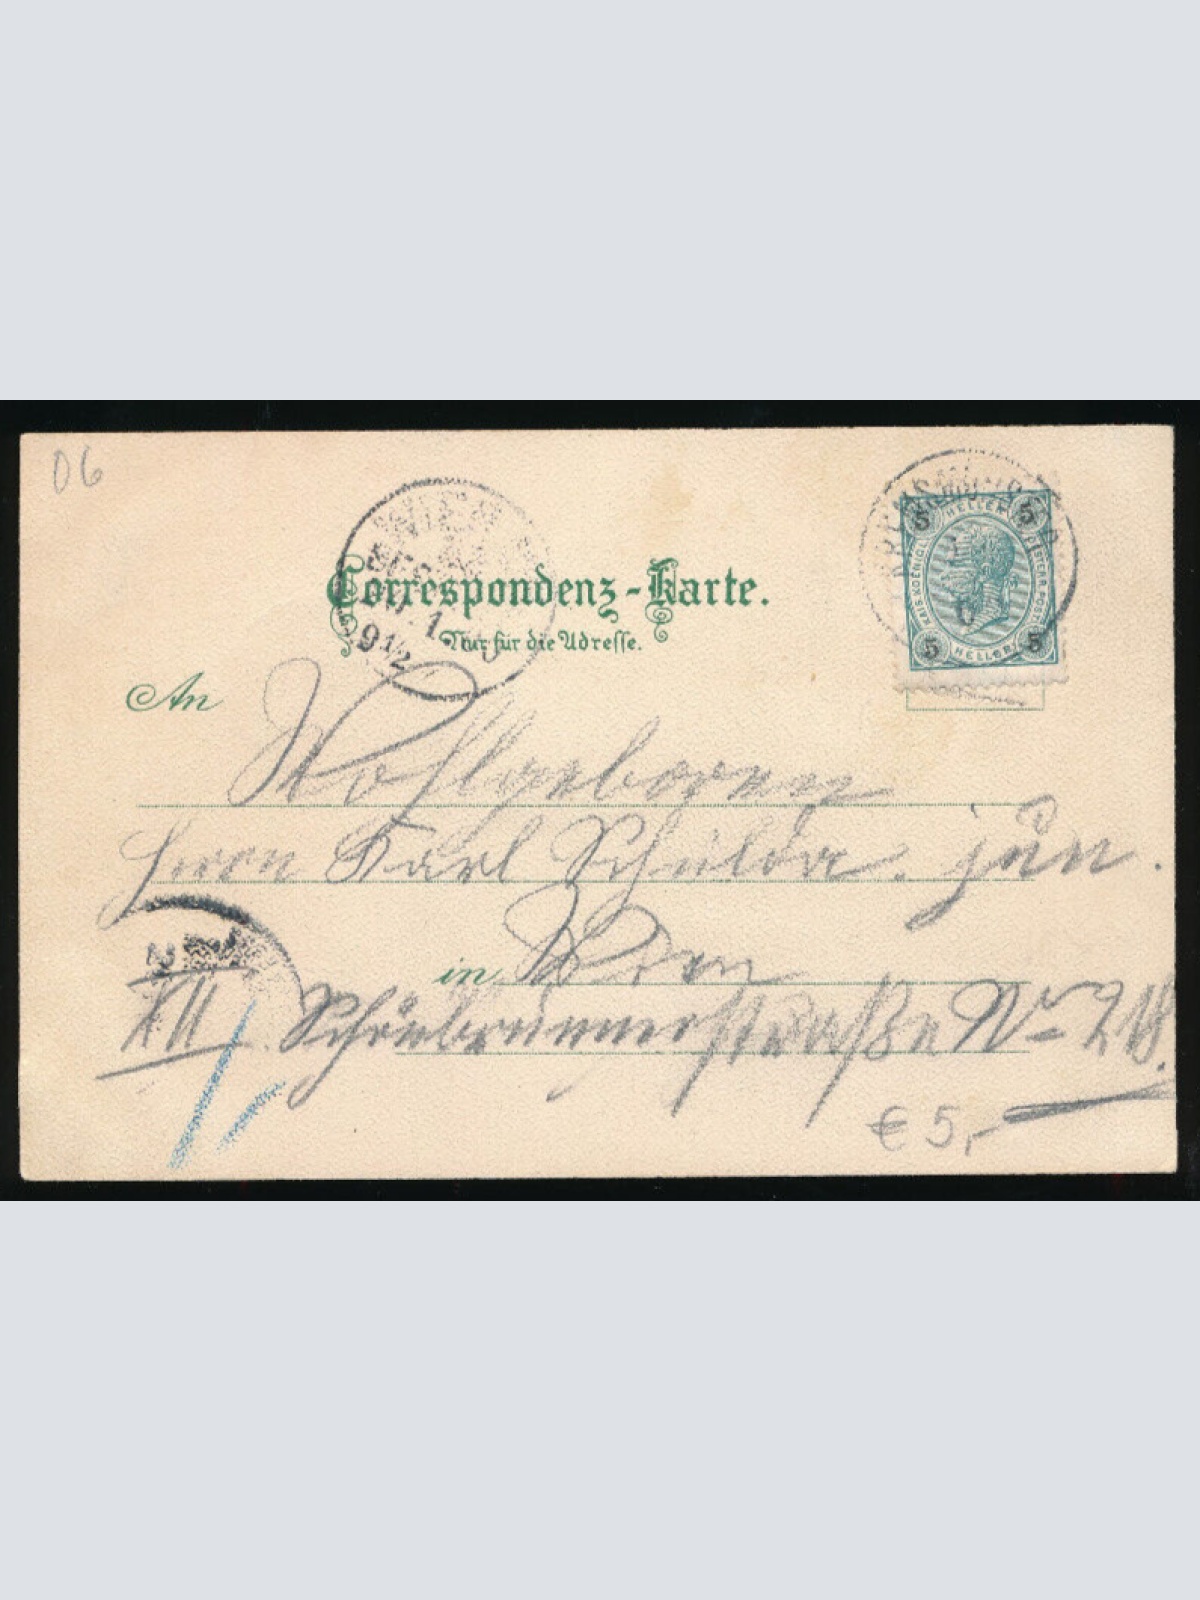 06
Correspondenz-Karte.
Nur für die Adresse.
5 HELLER 5
KAIS. KOENIGL. OESTERR. POST
5 HELLER 5
9 1/2
An
Wohlgeboren
Herrn Karl Schulda. jun.
in Wien
XII Schönbrunnerstraße Nr 218.
€ 5,-